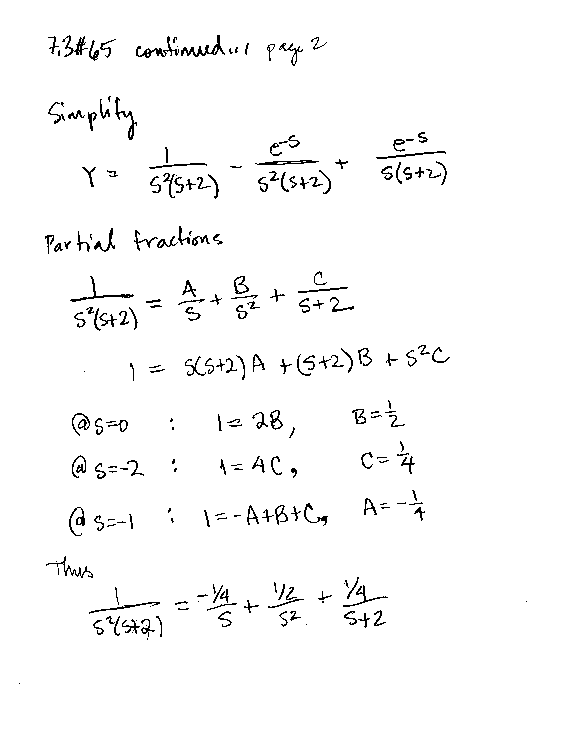 7.3#65 continued... page 2
Simplify
Y = 1/(s²(s+2)) - e^-s/(s²(s+2)) + e^-s/(s(s+2))
Partial fractions
1/(s²(s+2)) = A/s + B/s² + C/(s+2)
1 = s(s+2)A + (s+2)B + s²C
@ s=0 : 1 = 2B, B = 1/2
@ s=-2 : 1 = 4C, C = 1/4
@ s=-1 : 1 = -A+B+C, A = -1/4
Thus
1/(s²(s+2)) = (-1/4)/s + (1/2)/s² + (1/4)/(s+2)